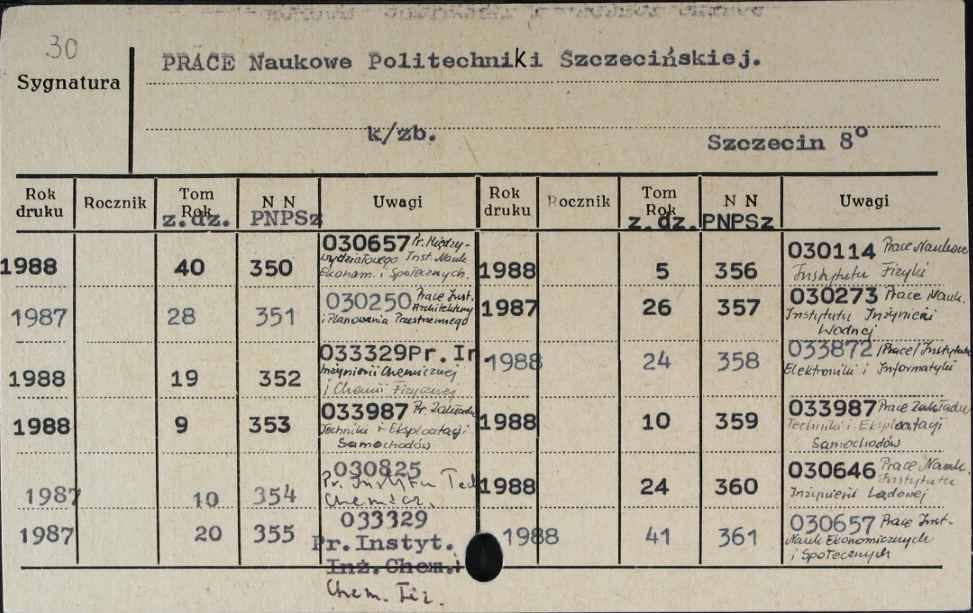 30
Sygnatura
PRACE Naukowe Politechniki Szczecińskiej.
k/zb.
Szczecin 8°
Rok druku Rocznik Tom Rok z.dz. N N PNPSz Uwagi
Rok druku Rocznik Tom Rok z.dz. N N PNPSz Uwagi
1988 40 350 030657 Pr. Między-
wydziałowego Inst. Nauk
Ekonom. i Społecznych.
1987 28 351 030250 Prace Inst.
Architektury
i Planowania Przestrzennego
1988 19 352 033329 Pr. In.
Inżynierii Chemicznej
i Chemii Fizycznej
1988 9 353 033987 Pr. Zakładu
Techniki i Eksploatacji
Samochodów
1987 10 354 030825
Pr. Instytu Tech
Chemicz.
1987 20 355 033329
Pr.Instyt.
Inż.Chem.i
Chem. Fiz.
1988 5 356 030114 Prace Naukowe
Instytutu Fizyki
1987 26 357 030273 Prace Nauk.
Instytutu Inżynierii
Wodnej
1988 24 358 033872 /Prace/ Instytutu
Elektroniki i Informatyki
1988 10 359 033987 Prace Zakładu
Techniki i Eksploatacji
Samochodów
1988 24 360 030646 Prace Nauk.
Instytutu
Inżynierii Lądowej
1988 41 361 030657 Prace Inst.
Nauk Ekonomicznych
i Społecznych